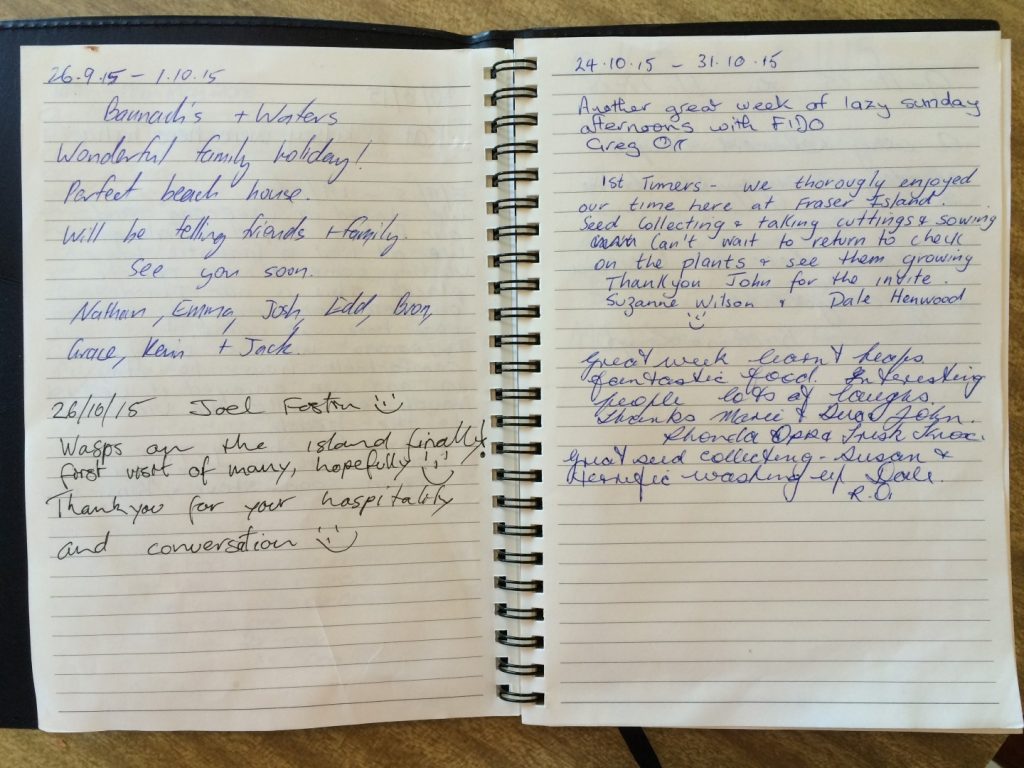 26.9.15 - 1.10.15
Baunach's + Waters
Wonderful family holiday!
Perfect beach house.
Will be telling friends + family.
See you soon.
Nathan, Emma, Josh, Edd, Bron,
Grace, Kevin + Jack.
26/10/15 Joel
Wasps on the island finally!
first visit of many, hopefully
Thankyou for your hospitality
and conversation
24.10.15 - 31.10.15
Another great week of lazy sunday
afternoons with FIDO
Greg Orr
1st Timers - we thorougly enjoyed
our time here at Fraser Island.
Seed Collecting & talking cuttings & sowing
Can't wait to return to check
on the plants & see them growing
Thankyou John for the invite.
Suzanne Wilson & Dale Henwood
Great week learnt heaps
fantastic food. Interesting
people lots of laughs.
Thanks John.
Rhonda
Great seed collecting - Susan &
terrific washing up Dale.
R.O.